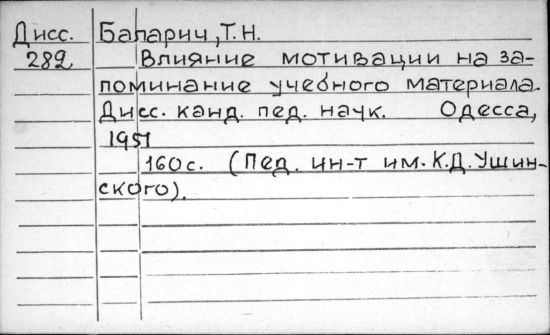 Дисс. Баларич, Т.Н.
282 Влияние мотивации на за-
поминание учебного материала.
Дисс. канд. пед. наук. Одесса,
1951
160с. (Пед. ин-т им. К.Д. Ушин-
ского).